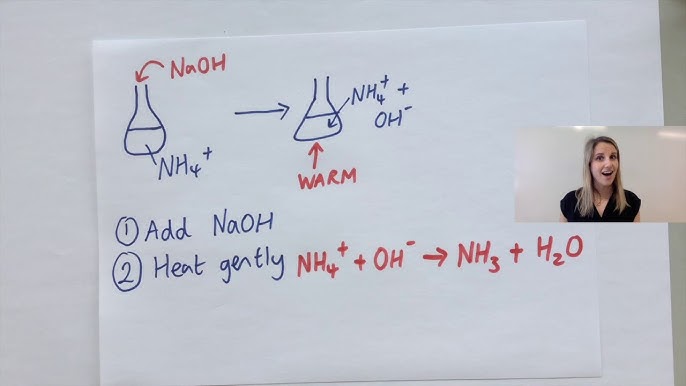 NaOH
NH₄⁺
NH₄⁺ +
OH⁻
WARM
① Add NaOH
② Heat gently NH₄⁺ + OH⁻ → NH₃ + H₂O